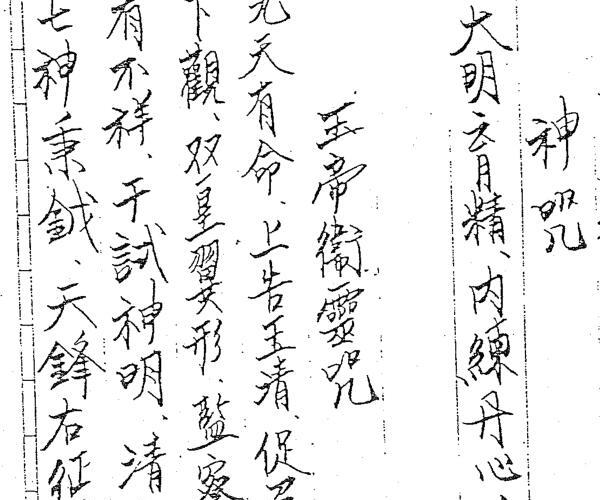 神咒
大明育精、內練丹心、
玉帝衛靈咒
九天有命、上告玉清、促召
下觀、双皇翼形、監察
有不祥、干試神明、清
七神秉鉞、天鋒右征